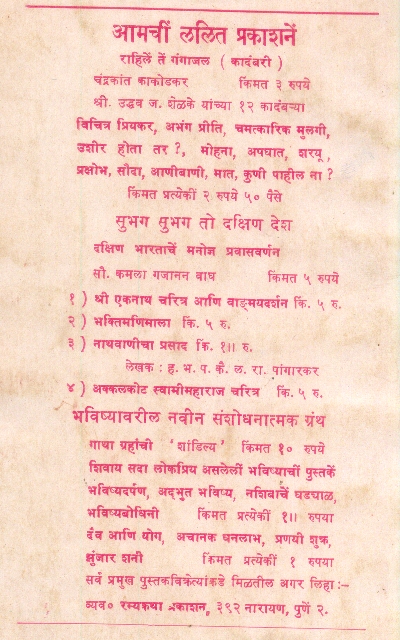 आमचीं ललित प्रकाशनें
राहिलें तें गंगाजल ( कादंबरी )
चंद्रकांत काकोडकर किंमत ३ रुपये
श्री. उद्धव ज. शेळके यांच्या १२ कादंबऱ्या
विचित्र प्रियकर, अभंग प्रीति, चमत्कारिक मुलगी,
उशीर होता तर ?, मोहना, अपघात, शरयू,
प्रक्षोभ, सौदा, आणीबाणी, मात, कुणी पाहील ना ?
किंमत प्रत्येकीं २ रुपये ५० पैसे
सुभग सुभग तो दक्षिण देश
दक्षिण भारताचें मनोज्ञ प्रवासवर्णन
सौ. कमला गजानन वाघ किंमत ५ रुपये
१ ) श्री एकनाथ चरित्र आणि वाङ्मयदर्शन किं. ५ रु.
२ ) भक्तिमणिमाला किं. ५ रु.
३ ) नाथवाणीचा प्रसाद किं. १॥ रु.
लेखक : ह. भ. प. कै. ल. रा. पांगारकर
४ ) अक्कलकोट स्वामीमहाराज चरित्र किं. ५ रु.
भविष्यावरील नवीन संशोधनात्मक ग्रंथ
गाथा ग्रहांची ‘शांडिल्य’ किंमत १० रुपये
शिवाय सदा लोकप्रिय असलेलीं भविष्याचीं पुस्तकें
भविष्यदर्पण, अद्‌भुत भविष्य, नशिबाचें घडघाळ,
भविष्यबोधिनी किंमत प्रत्येकीं १॥ रुपया
दैव आणि योग, अचानक धनलाभ, प्रणयी शुक्र,
झुंजार शनी किंमत प्रत्येकीं १ रुपया
सर्व प्रमुख पुस्तकविक्रेत्यांकडे मिळतील अगर लिहा :–
व्यव० रम्यकथा प्रकाशन, ३९२ नारायण, पुणें २.